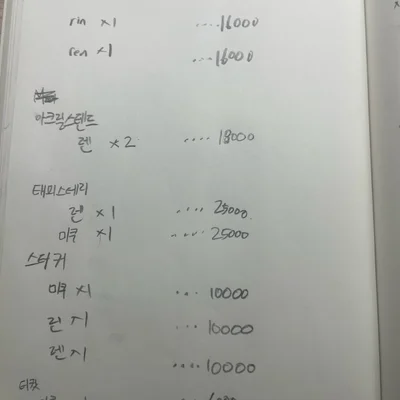 rin x1 ....16000
ren x1 ....16000
아크릴스텐드
렌 x2 .... 18000
태피스테리
렌 x1 .... 25000
미쿠 x1 ..... 25000
스티커
미쿠 x1 ... 10000
린 x1 ... 10000
렌 x1 .... 10000
티켓